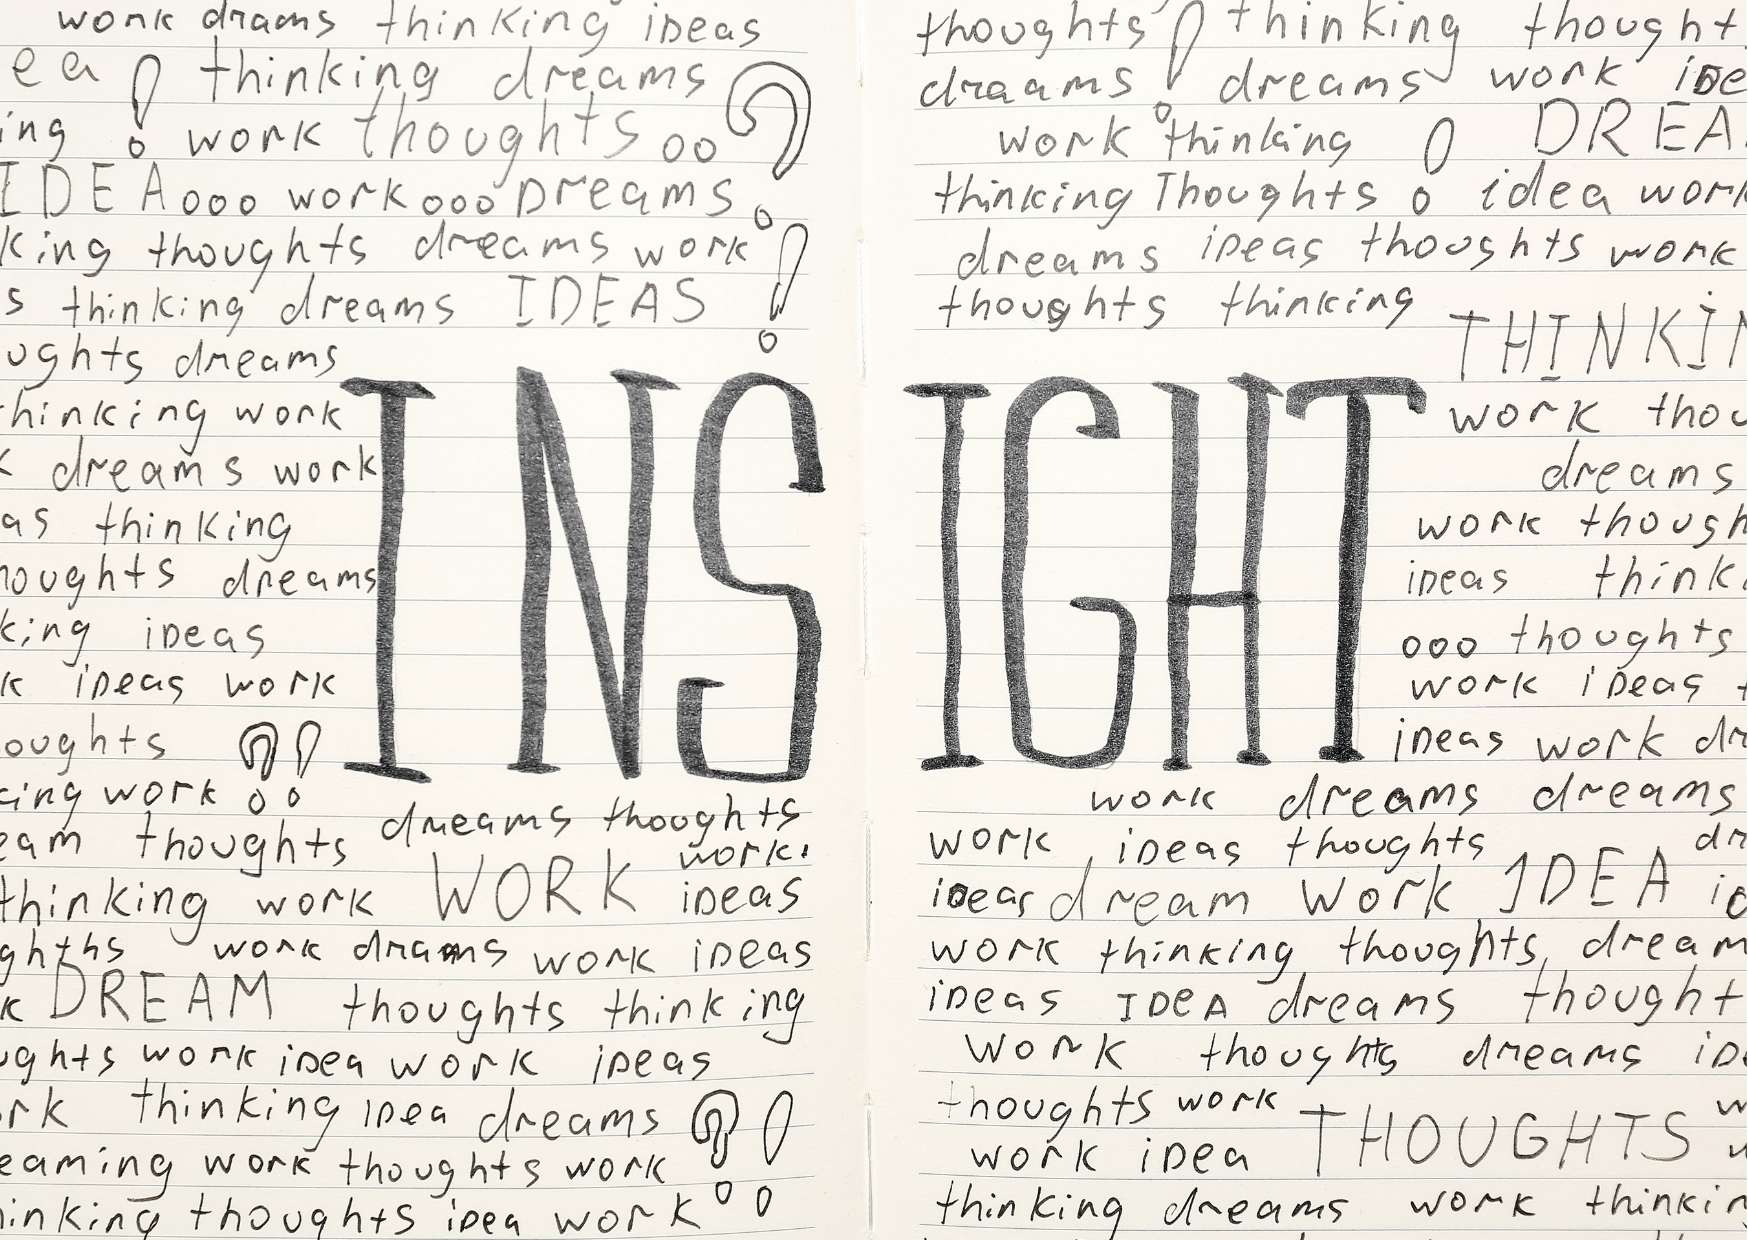 work drams thinking ideas
ea ! thinking dreams ?
ing work thoughts oo
IDEA ooo work ooo Dreams
king thoughts dreams work !
s thinking dreams IDEAS
ughts dreams
thinking work
k dreams work
as thinking
houghts dreams
king ideas
k ideas work
oughts ?!
king work
eam thoughts dreams thoughts
work.
thinking work WORK ideas
ghths work drams work ideas
k DREAM thoughts thinking
ughts work idea work ideas
rk thinking idea dreams ?!
eaming work thoughts work
hinking thoughts idea work
INSIGHT
thoughts ! thinking thought
draams dreams work ide
work thinking ! DREA
thinking Thoughts idea work
dreams ideas thoughts work
thoughts thinking
THINKIN
work thou
dreams
work though
ideas think
ooo thoughts
work ideas t
ideas work dr
work dreams dreams
work, ideas thoughts dr
ideas dream Work IDEA id
work thinking thoughts, dream
ideas IDEA dreams thought
Work thoughts dreams ide
thoughts work THOUGHTS w
work idea w
thinking dreams work thinkin